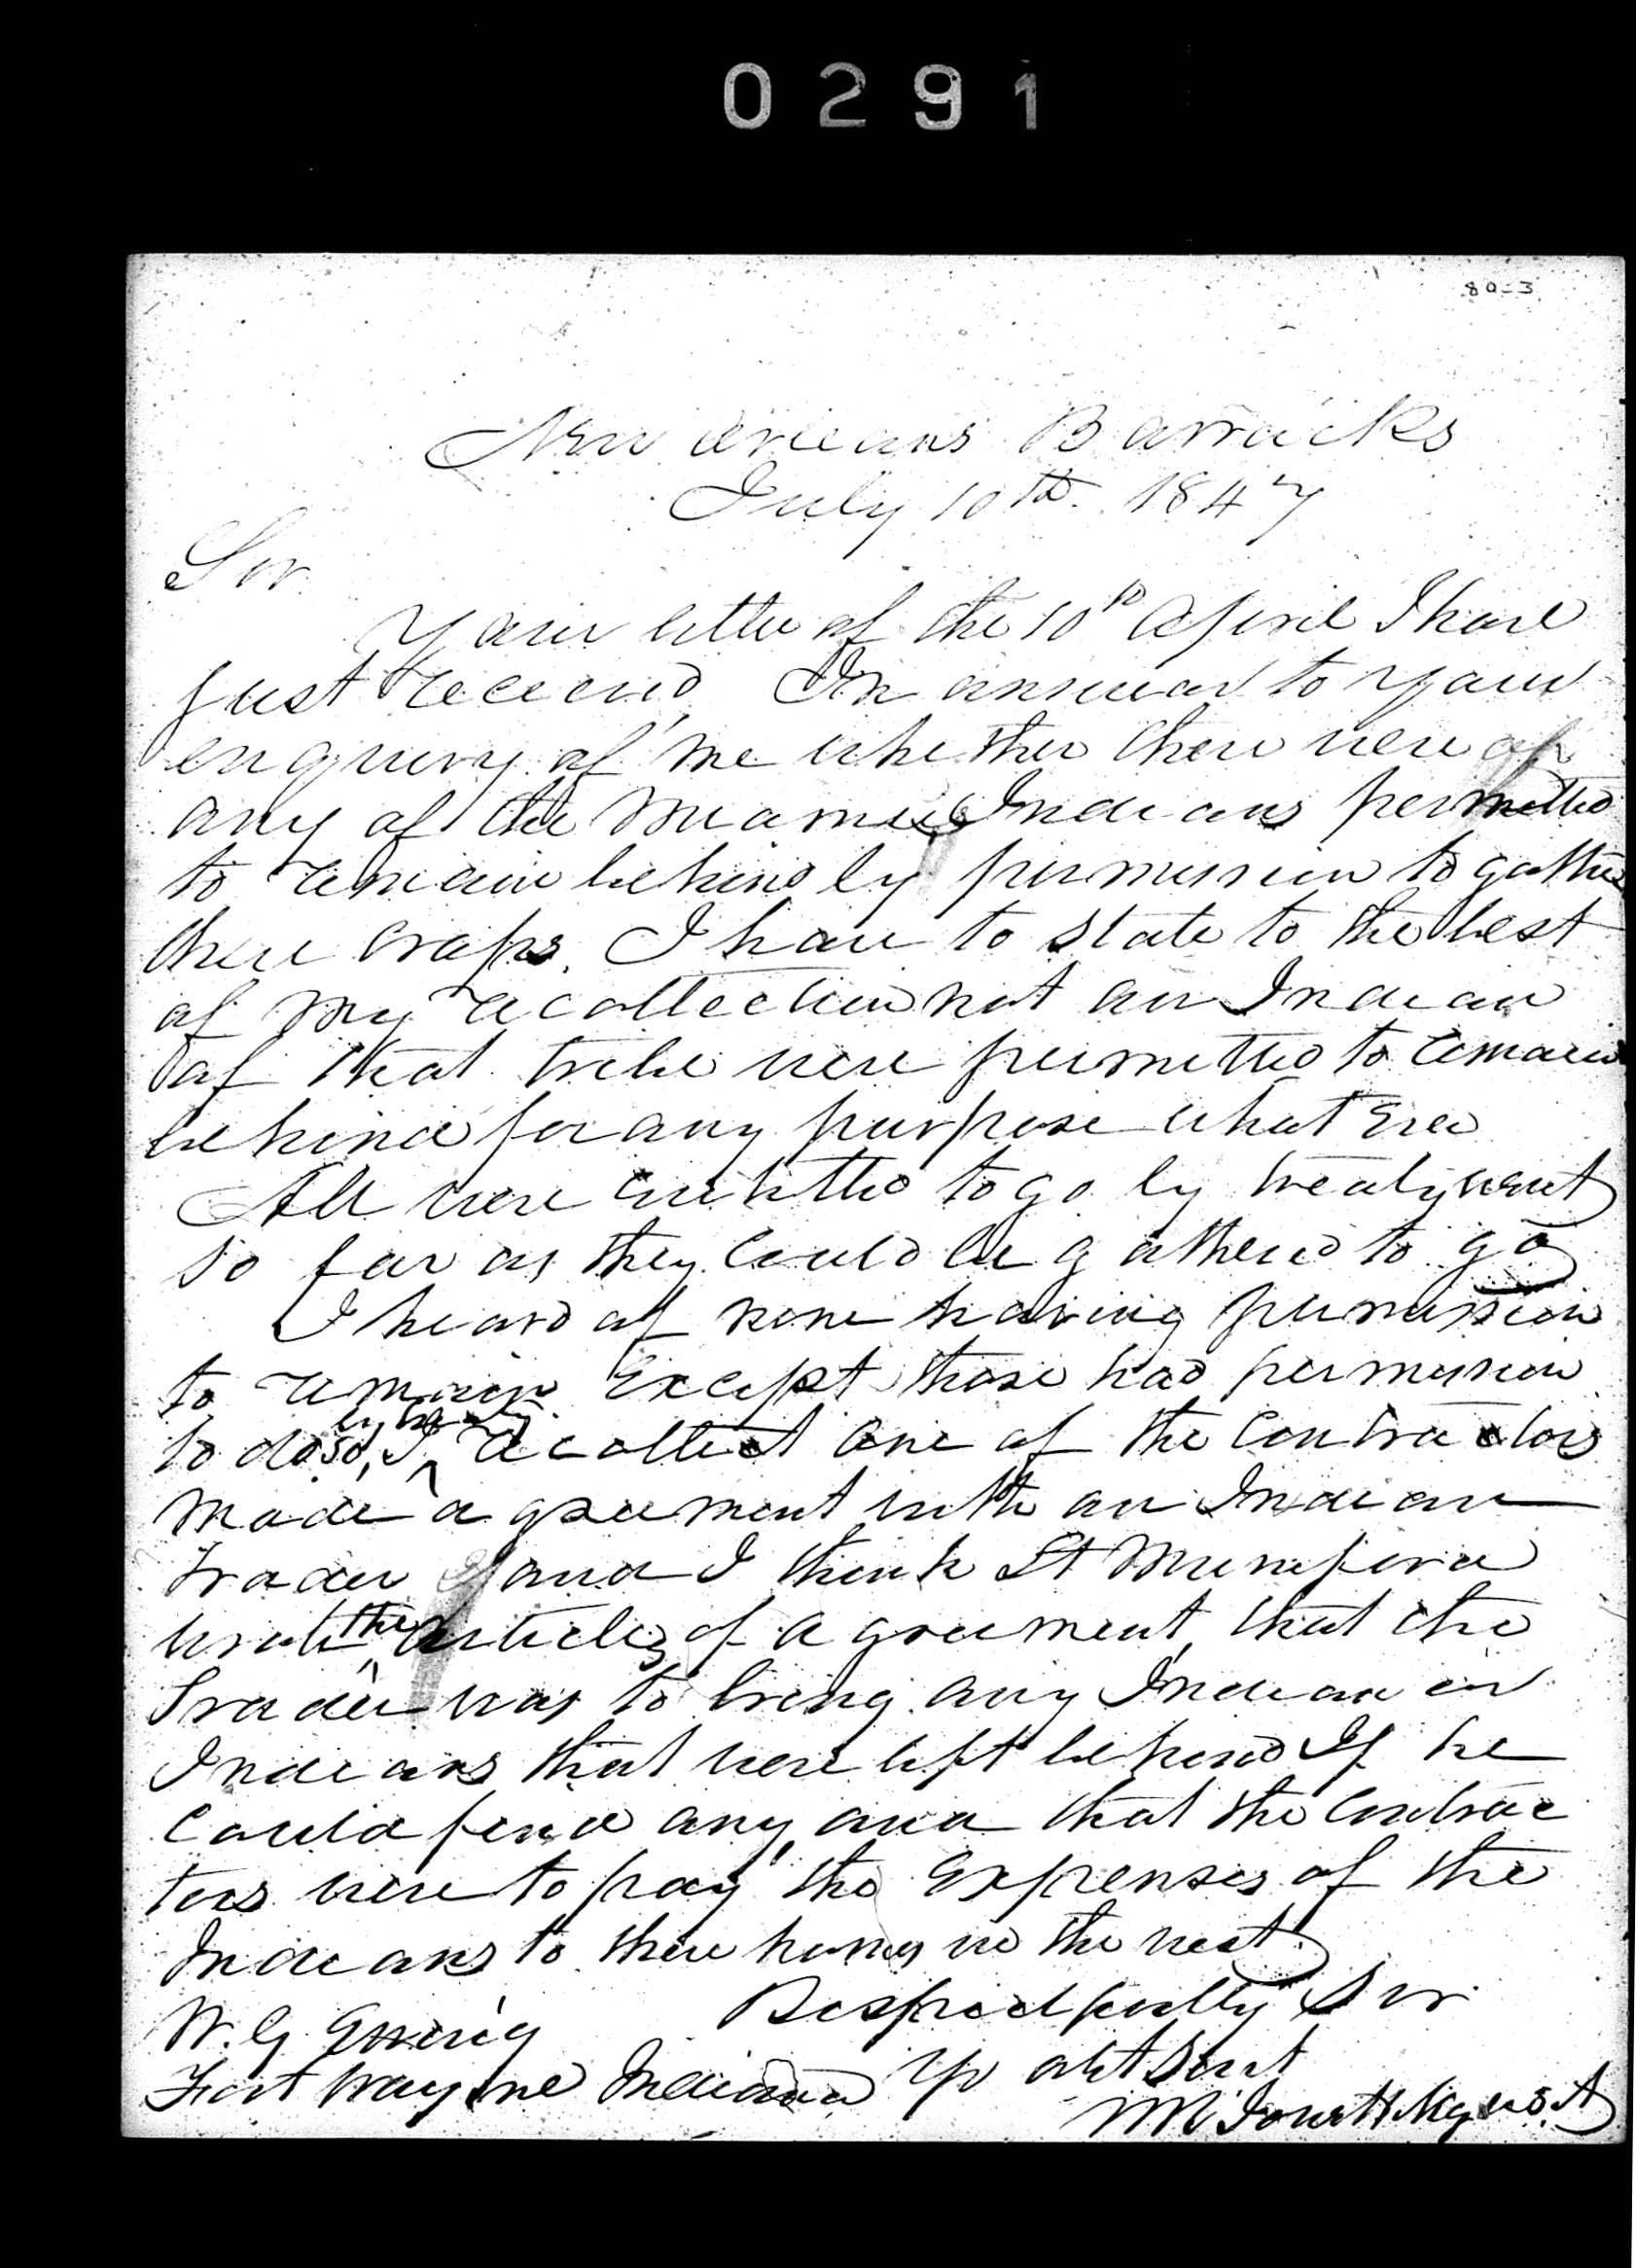 0291
New Orleans Barracks
July 10th. 1847
Sir
Your letter of the 10th April I have
just received In answer to your
enquiry of me whether there were of
any of the Miamie Indians permitted
to remain behind by permission to gather
there crops. I have to state to the best
of my recollection not an Indian
of that tribe were permitted to remain
behind for any purpose what ever
All were entitled to go by treaty went
so far as they could be gathered to go
I heard of none having permission
to remain Except those had permission
by treaty
to do so, I recollect one of the Contractors
made agreement with an Indian
Trader and I think Lt
the
wrote articles of agreement, that the
Trader was to bring any Indian in
Indians that were left behind If he
could find any, and that the Contrac
tors were to pay the Expenses of the
Indians to there homes in the west
Respectfully Sir
W. G. Ewing
Fort Wayne Indiana Yr obt Sert
U.S.A